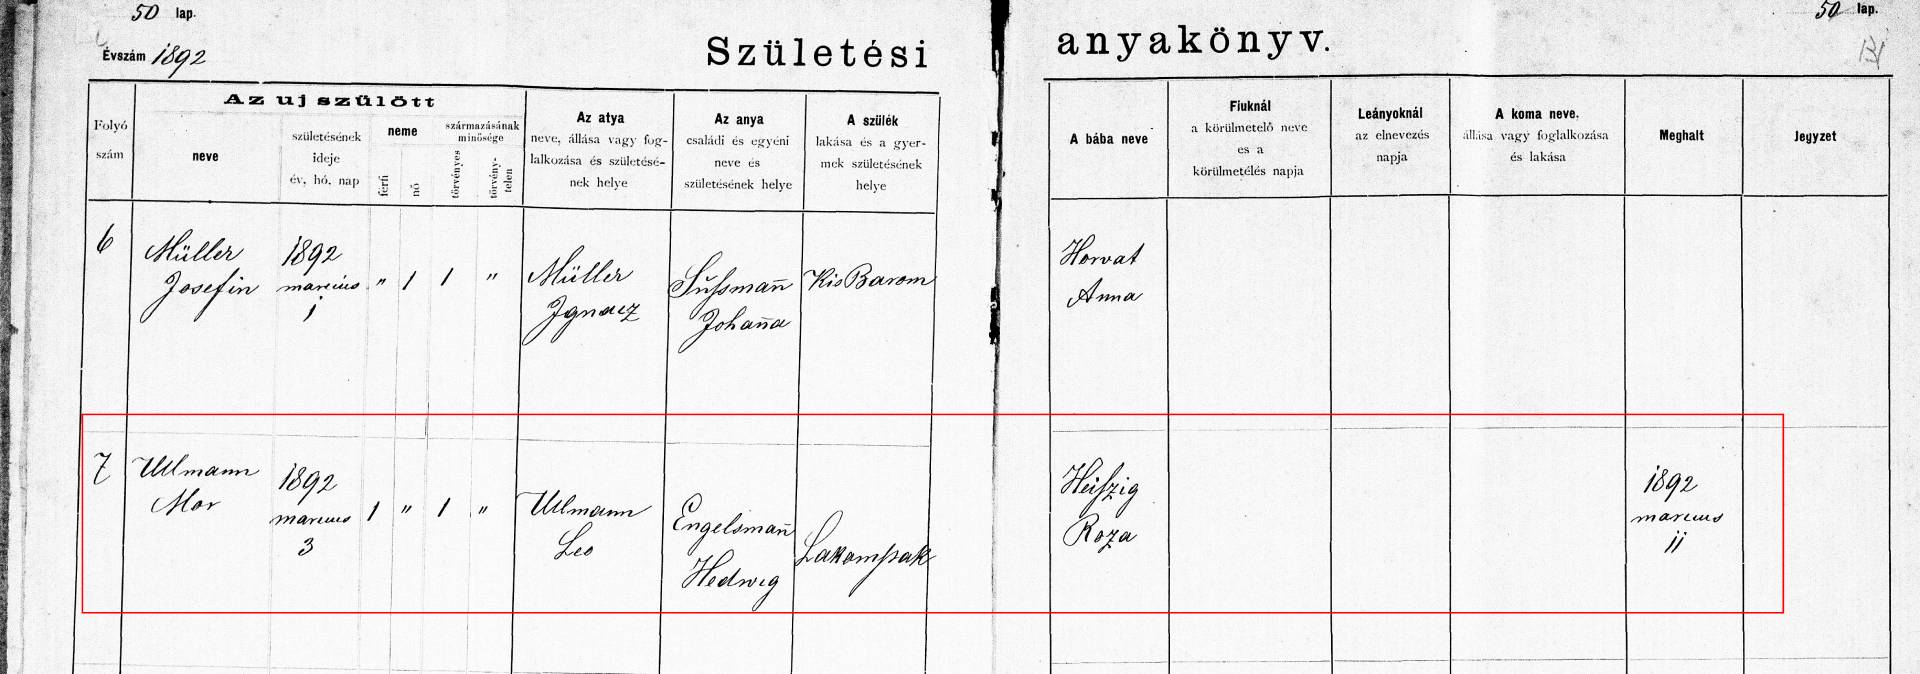 50 lap.
50 lap.
Évszám 1892
Születési anyakönyv.
Folyó szám
Az uj szülött
neve
születésének ideje év, hó, nap
neme
férfi
nő
származásának minősége
törvényes
törvénytelen
Az atya
neve, állása vagy fog-
lalkozása és születésé-
nek helye
Az anya
családi és egyéni
neve és
születésének helye
A szülék
lakása és a gyer-
mek születésének
helye
A bába neve
Fiuknál
a körülmetelő neve
es a
körülmetélés napja
Leányoknál
az elnevezés
napja
A koma neve,
állása vagy foglalkozása
és lakása
Meghalt
Jegyzet
6
Müller
Josefin
1892
marcius
1
"
1
1
"
Müller
Ignacz
Sussmann̄
Johan̄a
Kis Barom
Horvat
Anna
7
Ullmann
Mor
1892
marcius
3
1
"
1
"
Ullmann
Leo
Engelsman̄
Hedwig
Lakompak
Heiszig
Roza
1892
marcius
11